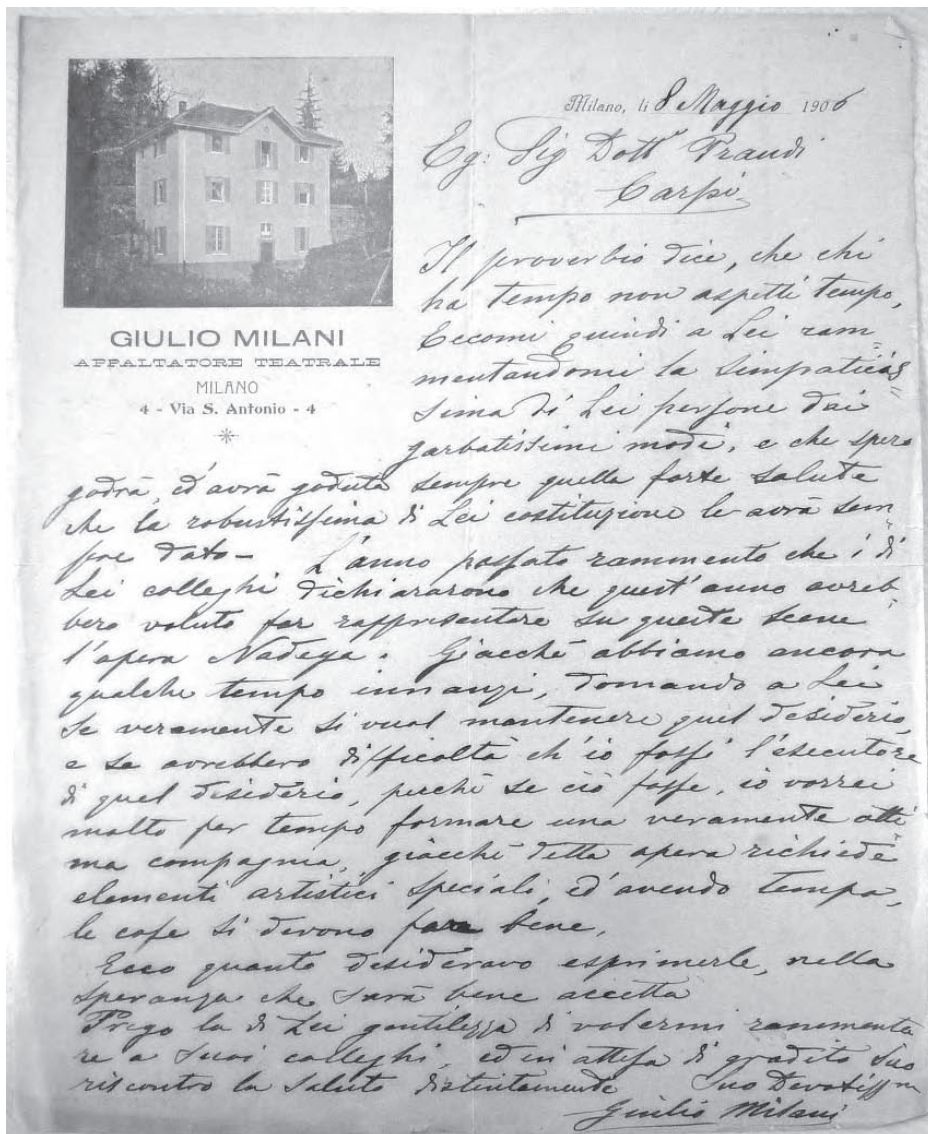 Milano, li 8 Maggio 1906
Eg: Sig Dott Prandi
Carpi
GIULIO MILANI
APPALTATORE TEATRALE
MILANO
4 - Via S. Antonio - 4
Il proverbio dice, che chi
ha tempo non aspetti tempo,
Eccomi quindi a Lei ram=
mentandomi la simpaticis=
sima di Lei persone dai
garbatissimi modi, e che spero
godrà, ed avrà goduta sempre quella forte salute
che la robustissima di Lei costituzione le avrà sem
pre dato - L'anno passato rammento che i di
Lei colleghi dichiararono che quest'anno avreb=
bero voluto far rappresentare su queste scene
l'opera Nadeya. Giacchè abbiamo ancora
qualche tempo innanzi, domando a Lei
se veramente si vuol mantenere quel desiderio,
e se avrebbero difficoltà ch'io fossi l'esecutore
di quel desiderio, perchè se ciò fosse, io vorrei
molto per tempo formare una veramente otti
ma compagnia, giacchè detta opera richiede
elementi artistici speciali, ed avendo tempo,
le cose si devono fare bene,
Ecco quanto desideravo esprimerle, nella
speranza che sarà bene accetta
Prego la di Lei gentilezza di volermi rammenta
re a suoi colleghi, ed in attesa di gradito suo
riscontro la saluto distintamente Suo Devotissmo
Giulio Milani